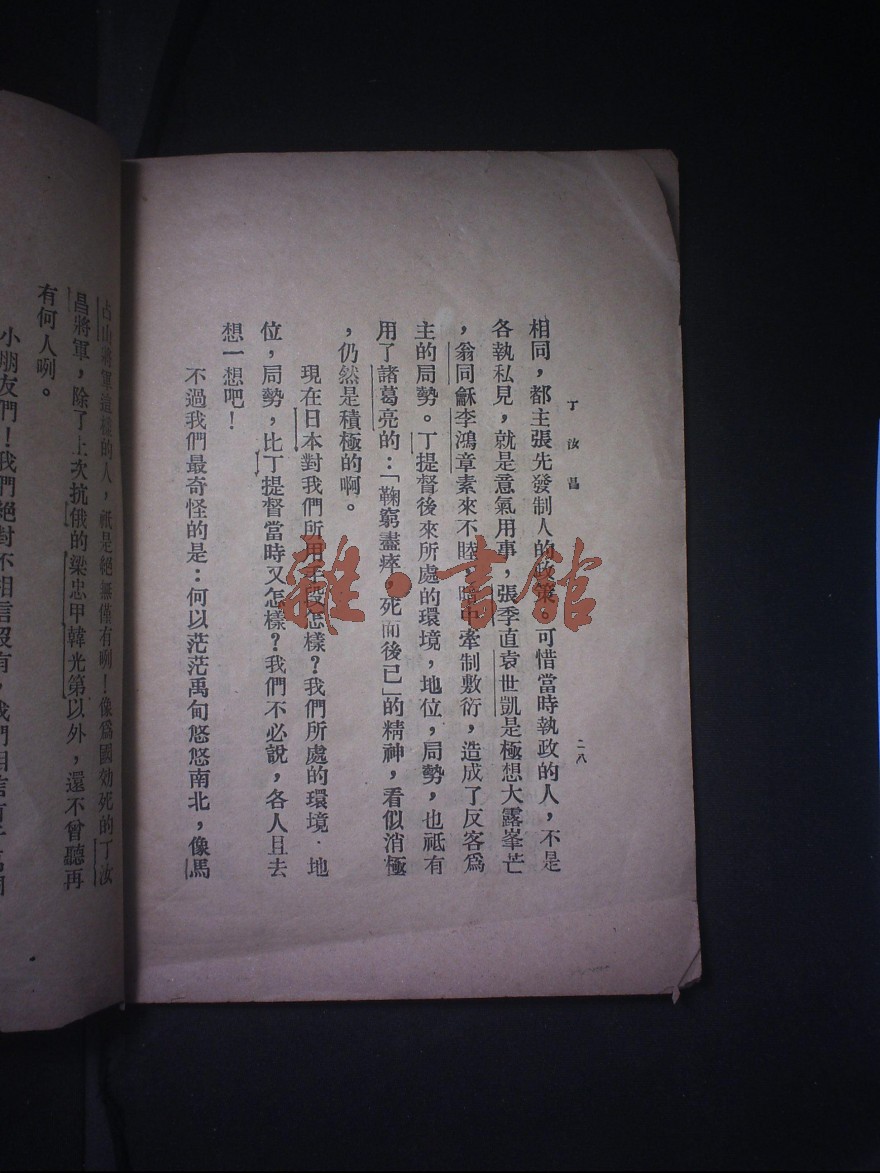 丁汝昌
二八
相同，都主張先發制人的政策。可惜當時執政的人，不是
各執私見，就是意氣用事，張季直袁世凱是極想大露峯芒
，翁同龢李鴻章素來不睦，暗中牽制敷衍，造成了反客爲
主的局勢。丁提督後來所處的環境，地位，局勢，也祇有
用了諸葛亮的：「鞠躬盡瘁，死而後已」的精神，看似消極
，仍然是積極的啊。
現在日本對我們所用手段怎樣？我們所處的環境．地
位，局勢，比丁提督當時又怎樣？我們不必說，各人且去
想一想吧！
不過我們最奇怪的是：何以茫茫禹甸悠悠南北，像馬
占山將軍這樣的人，祇是絕無僅有咧！像爲國効死的丁汝
昌將軍，除了上次抗俄的梁忠甲韓光第以外，還不曾聽再
有何人咧。
小朋友們！我們絕對不相信沒有，我們相信有
雜·書館